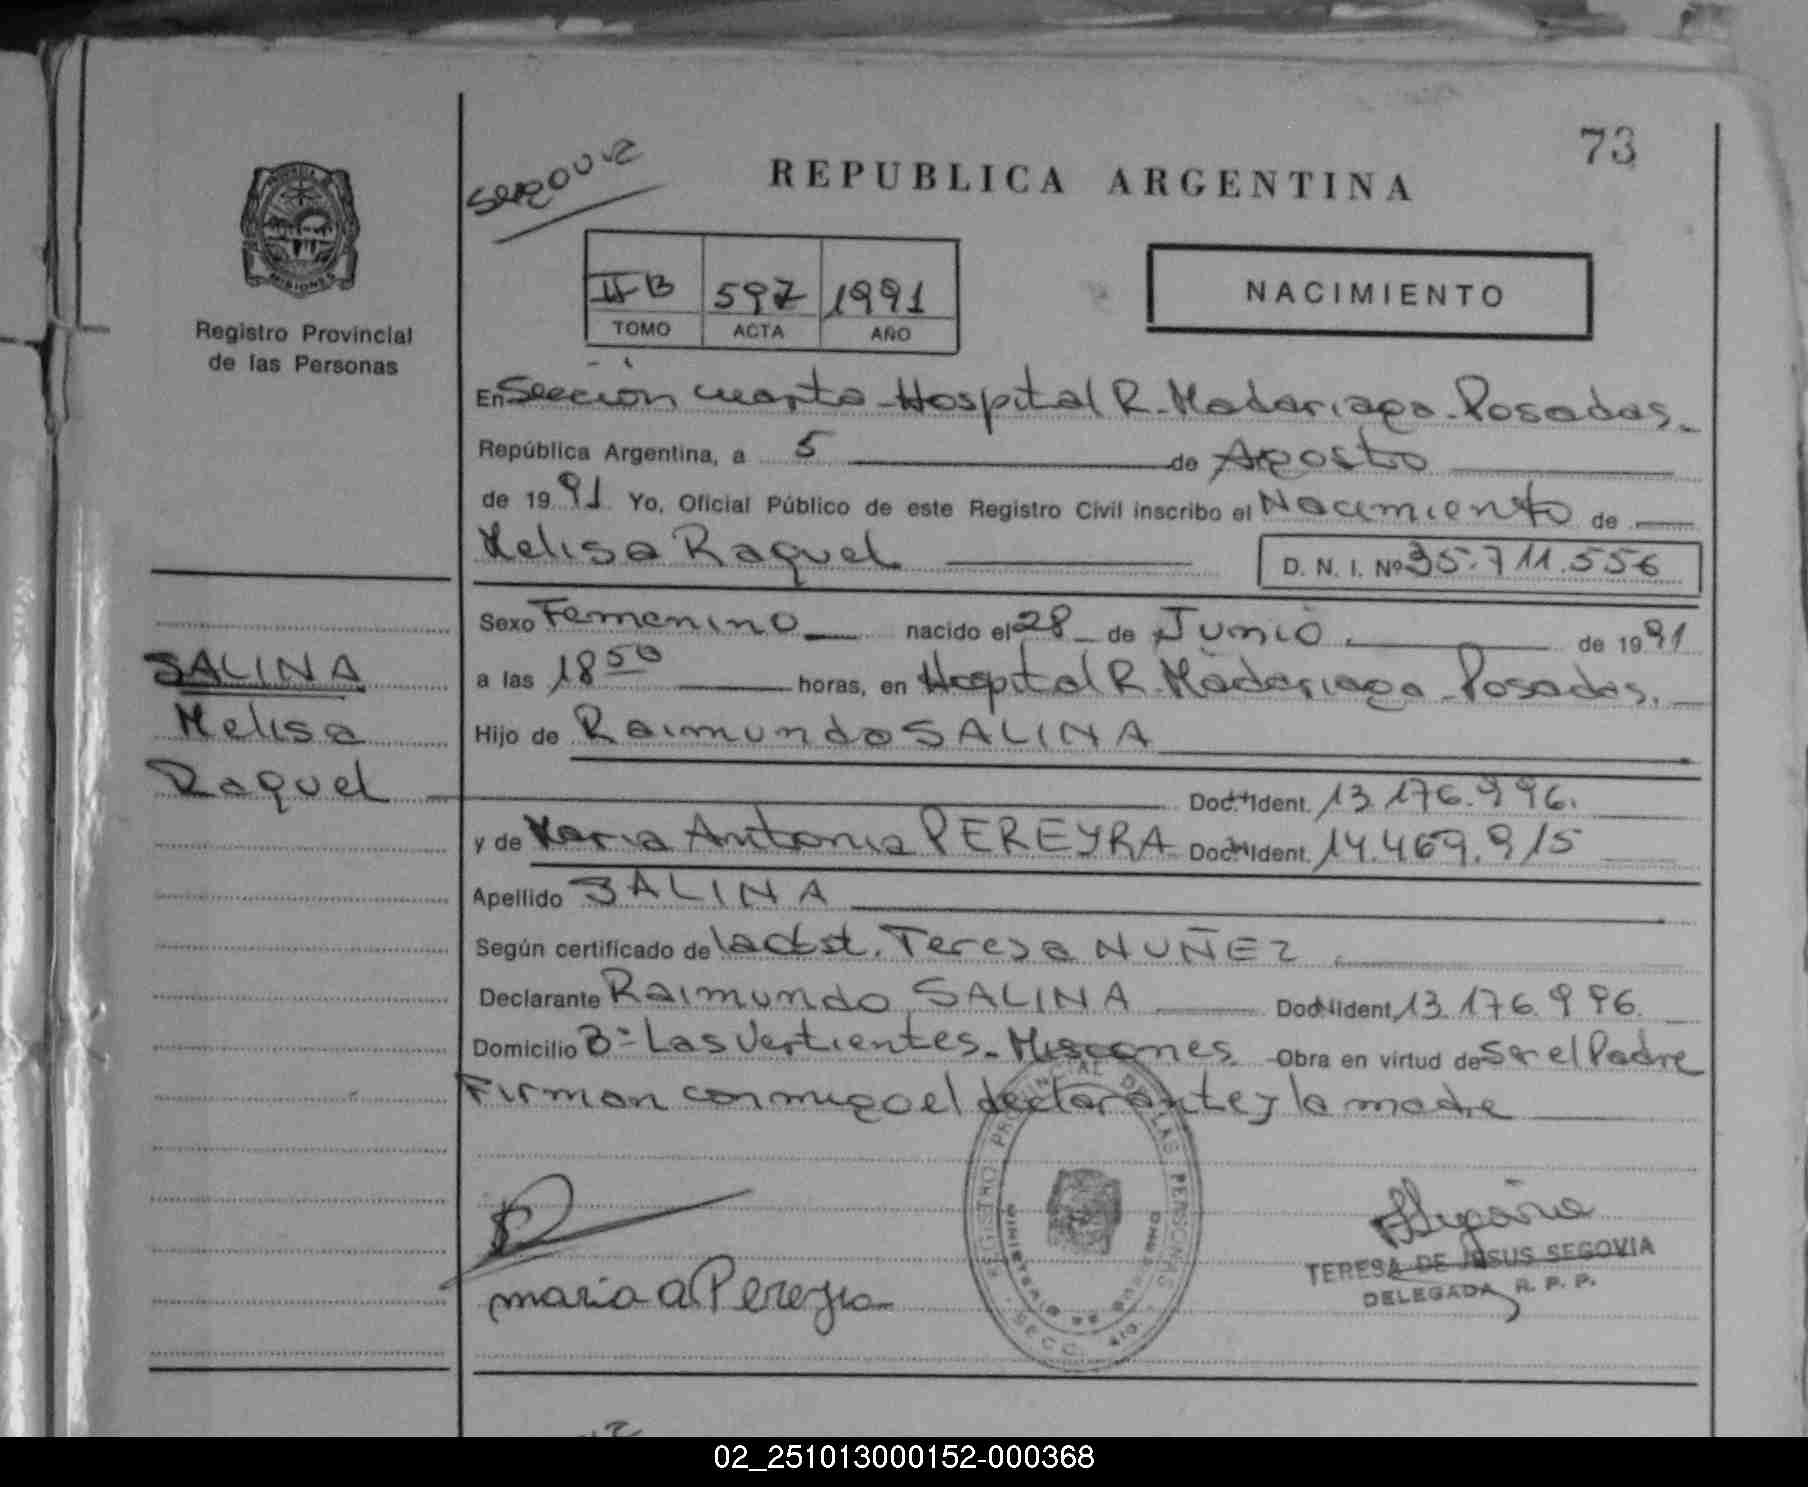 73
REPUBLICA ARGENTINA
MISIONES
Registro Provincial
de las Personas
II-B 597 1991
TOMO ACTA AÑO
NACIMIENTO
En Sección cuarta - Hospital R. Madariaga - Posadas.
República Argentina, a 5 de Agosto
de 1991 Yo, Oficial Público de este Registro Civil inscribo el Nacimiento de
Melisa Raquel D. N. I. Nº 35.711.556
Sexo Femenino nacido el 28 de Junio de 1991
a las 18 50 horas, en Hospital R. Madariaga - Posadas.
Hijo de Raimundo SALINA
Doc. Ident. 13.176.996.
y de Maria Antonia PEREYRA Doc. Ident. 14.469.915
Apellido SALINA
Según certificado de la obst. Teresa NUÑEZ
Declarante Raimundo SALINA Doc. Ident. 13.176.996.
Domicilio Bº Las Vertientes - Misiones. Obra en virtud de Ser el Padre
Firman conmigo el declarante y la madre
SALINA
Melisa
Raquel
maria a Pereyra
REGISTRO PROVINCIAL DE LAS PERSONAS
TERESA DE JESUS SEGOVIA
DELEGADA R. P. P.
02_251013000152-000368